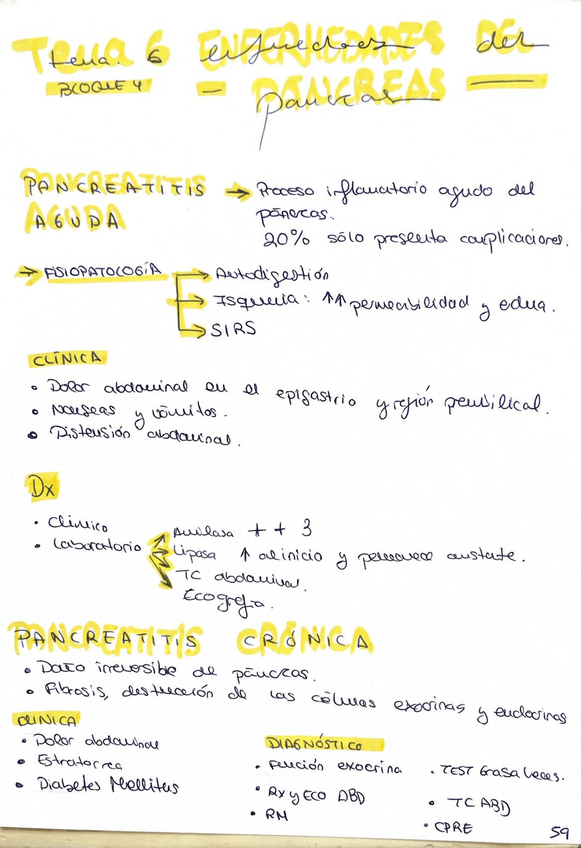 Tema 6 ENFERMEDADES DEL
tema. 6 enfermedades del
BLOQUE 4 - PÁNCREAS -
páncreas
PANCREATITIS AGUDA → Proceso inflamatorio agudo del
páncreas.
20% sólo presenta complicaciones.
→ FISIOPATOLOGÍA → Autodigestión
→ Isquemia: ↑↑ permeabilidad y edema.
→ SIRS
CLÍNICA
• Dolor abdominal en el epigastrio y región periubilical.
• Nauseas y vómitos.
• Distensión abdominal.
Dx
• Clínico
• Laboratorio Amilasa + + 3
Lipasa ↑ al inicio y permanece constante.
TC abdominal.
Ecografía.
PANCREATITIS CRÓNICA
• Daño irreversible de páncreas.
• Fibrosis, destrucción de las células exocrinas y endocrinas
CLINICA
• Dolor abdominal
• Estratorrea
• Diabetes Mellitus
DIAGNÓSTICO
• Función exocrina • TEST Grasa heces.
• Rx y ECO ABD • TC ABD
• RM • CPRE
59